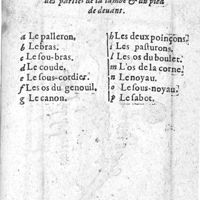 des parties de la iambe & du pied
de deuant.
a Le palleron.
b Le bras.
c Le sou-bras.
d Le coude.
e Le sous-cordier.
f Les os du genouil,
g Le canou.
h Les deux poinçons.
i Les pasturons.
l Les os du boulet.
m L'os de la corne.
n Le noyau.
o Le sous-noyau.
p Le sabot.